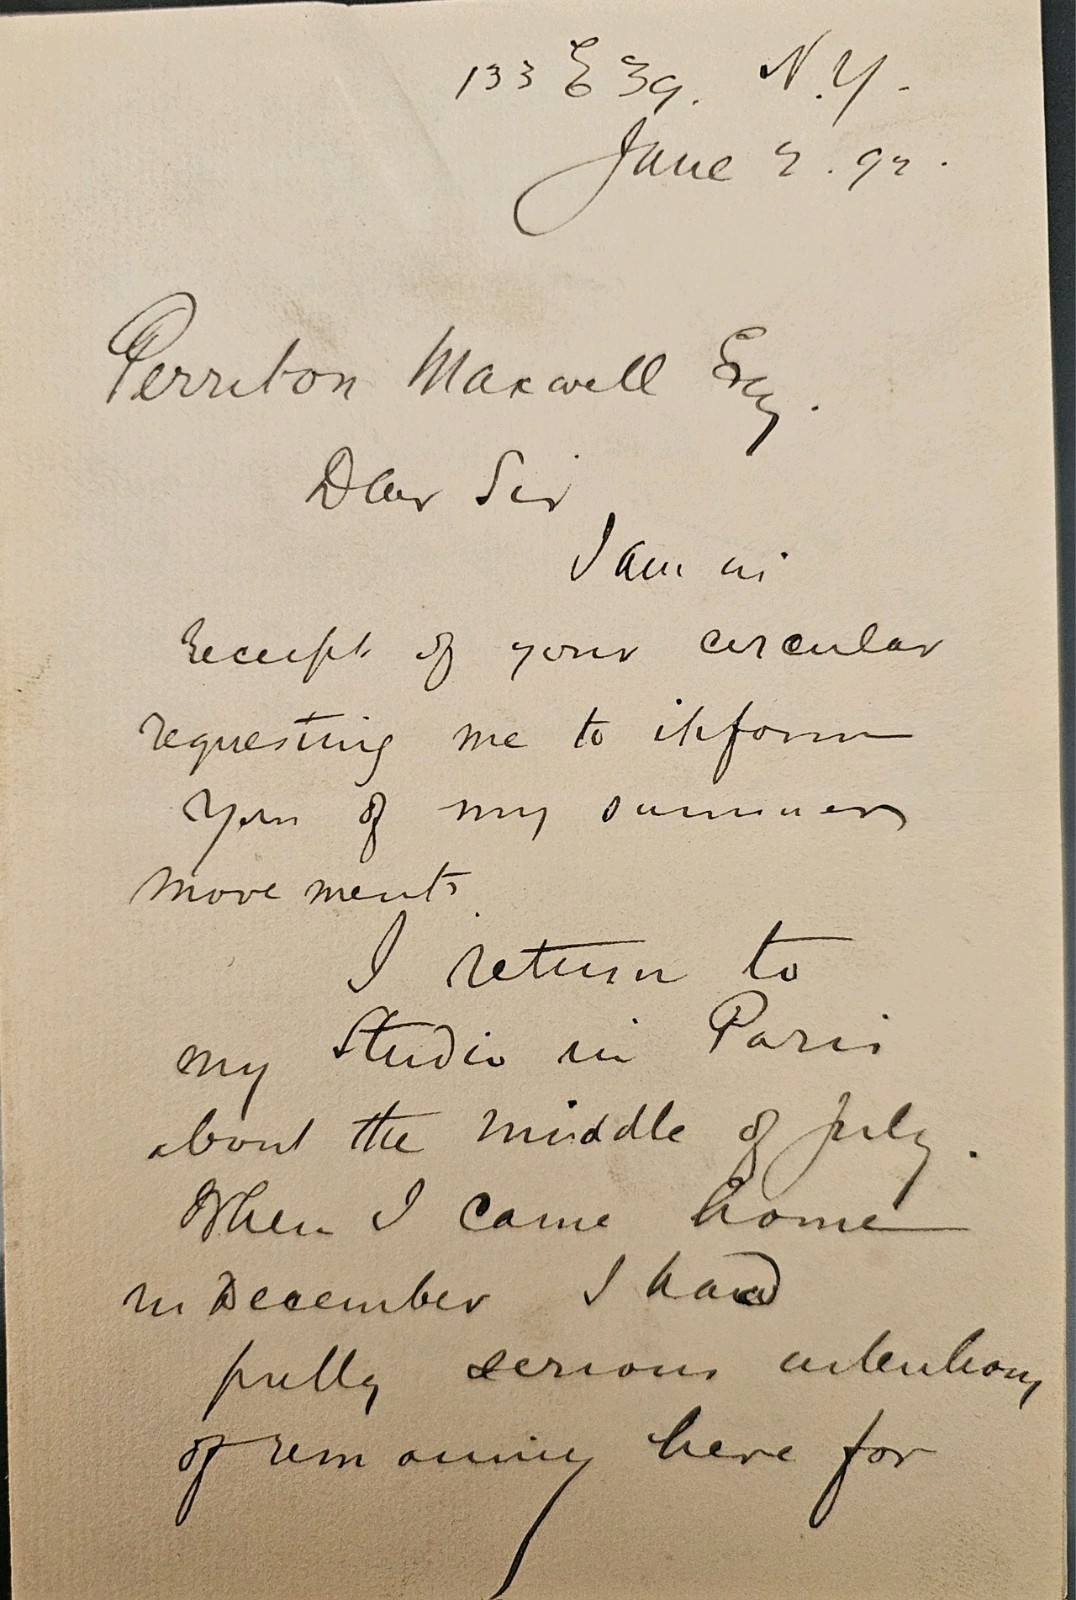 133 E 39. N.Y.
June 2. 92.
Perriton Maxwell Esq.
Dear Sir
I am in
receipt of your circular
requesting me to inform
you of my summer
movements.
I return to
my Studio in Paris
about the middle of July.
When I came home
in December I had
pretty serious intentions
of remaining here for